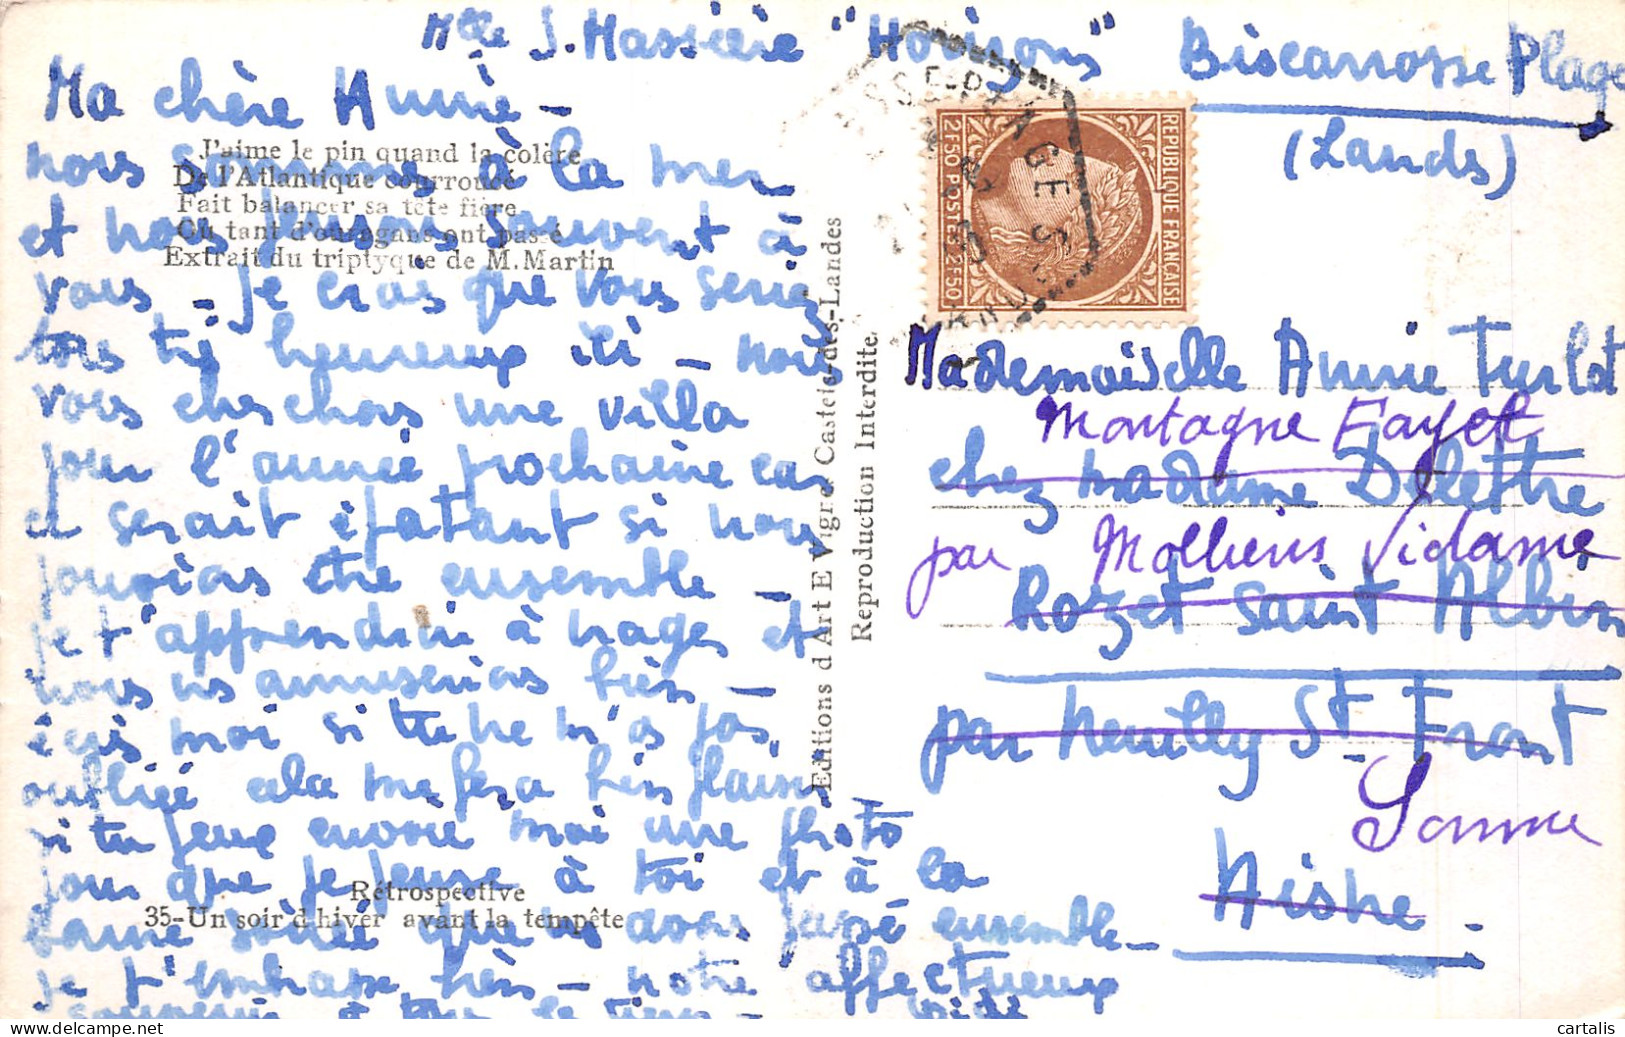 Mlle J. Massière "Horizons" Biscarrosse Plage
(Landes)
Ma chère Annie -
nous sommes à la mer
et nous pensons souvent à
vous - je crois que vous seriez
tous très heureux ici - nous
vous cherchons une villa
pour l'année prochaine car
ce serait épatant si nous
pouvions être ensemble -
je t'apprendrai à nager et
nous ns amuserions bien -
écris moi si tu ne m'as pas
oubliée cela me fera bien plaisir
si tu peux envoie moi une photo
pour que je pense à toi et à la
bonne soirée que ns avons passé ensemble -
je t'embrasse très - notre affectueux
souvenir à tous les tiens -
J'aime le pin quand la colère
De l'Atlantique courroucé
Fait balancer sa tête fière
Où tant d'ouragans ont passé
Extrait du triptyque de M. Martin
Rétrospective
35-Un soir d'hiver avant la tempête
Editions d'Art E Vigre Castets-des-Landes
Reproduction Interdite
REPUBLIQUE FRANÇAISE
2F50 POSTES 2F50
Mademoiselle Annie Turlot
Montagne Fayel
chez Madame Delettre
par Molliens Vidame
Rozet Saint Albin
par Neuilly St. Front
Somme
Aisne
cartalis